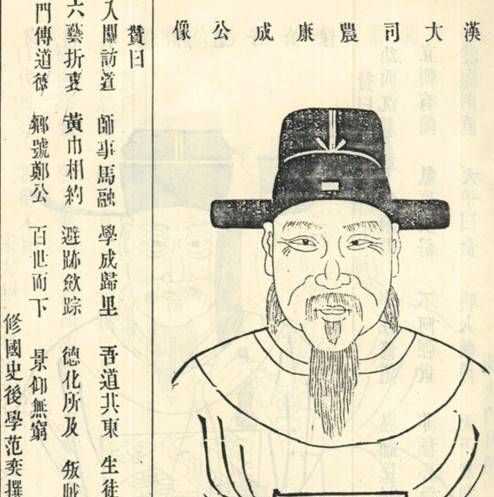 漢大司農康成公像
贊曰
入關訪道 師事馬融 學成歸里 吾道其東 生徒
六藝折衷 黃巾相約 避跡斂踪 德化所及 叛賊
門傳道德 鄉號鄭公 百世而下 景仰無窮
修國史後學范奕撰